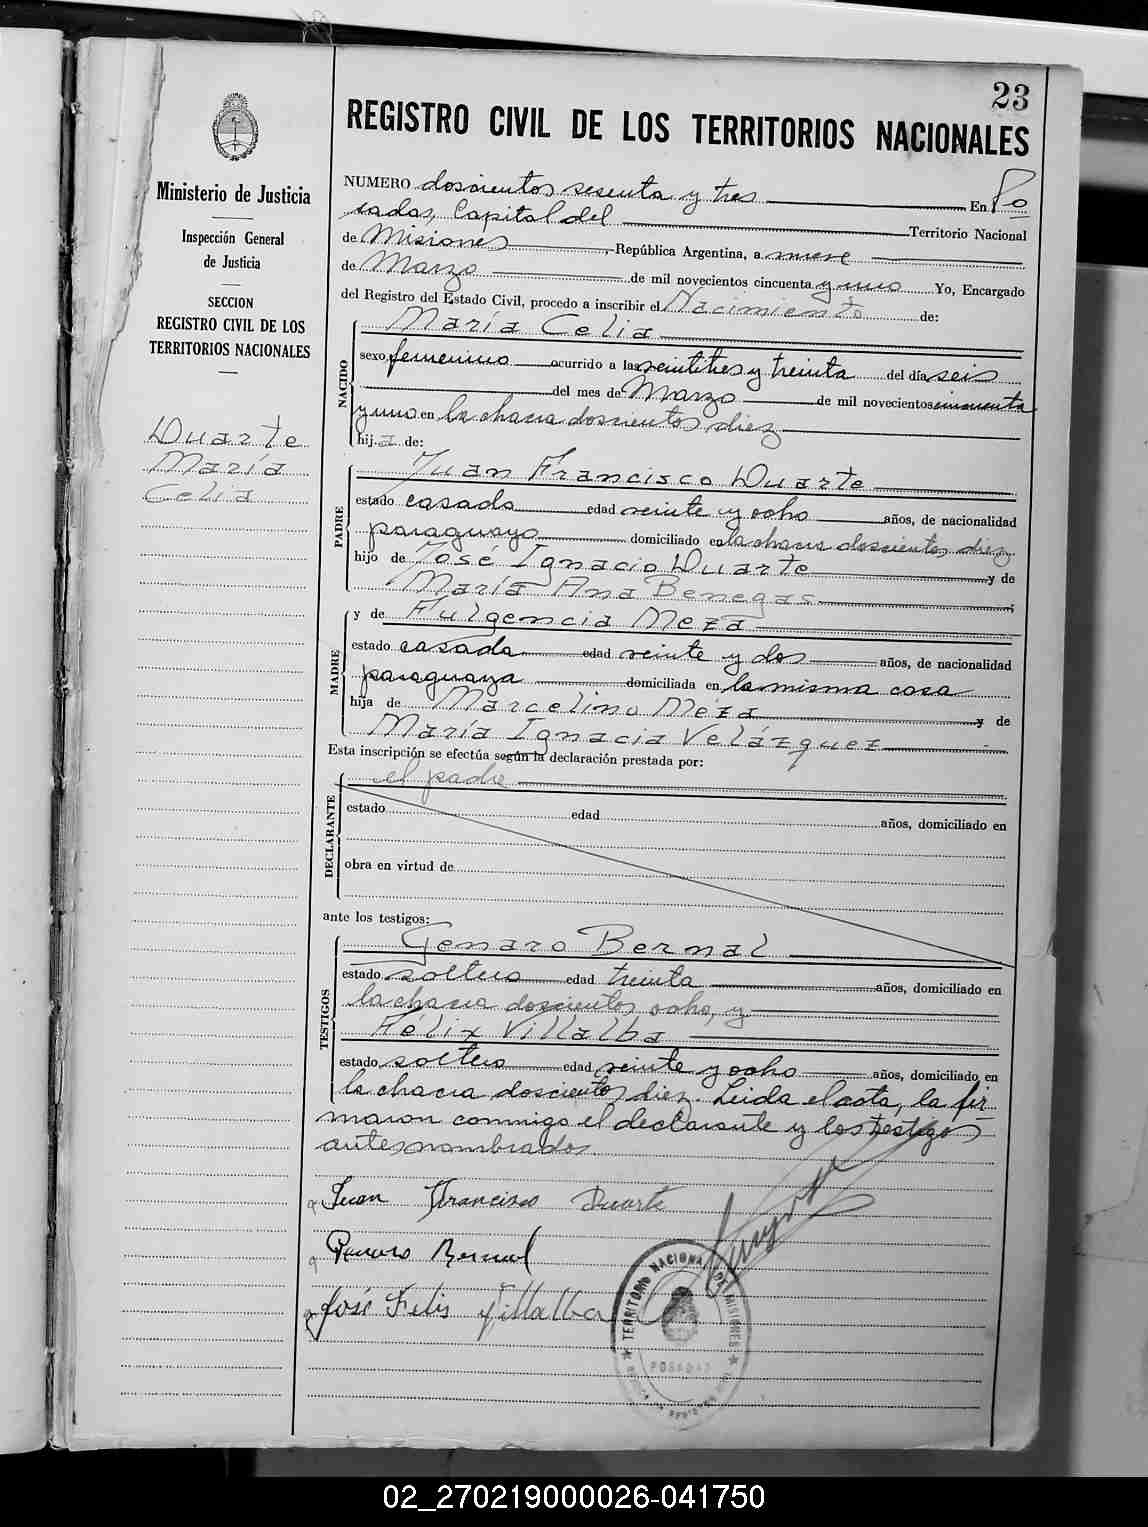 23
REGISTRO CIVIL DE LOS TERRITORIOS NACIONALES
Ministerio de Justicia
Inspección General
de Justicia
SECCION
REGISTRO CIVIL DE LOS
TERRITORIOS NACIONALES
Duarte
María
Celia
NUMERO doscientos sesenta y tres En Po
sadas, Capital del Territorio Nacional
de Misiones, República Argentina, a nueve
de Marzo de mil novecientos cincuenta y uno Yo, Encargado
del Registro del Estado Civil, procedo a inscribir el Nacimiento de:
NACIDO
María Celia
sexo femenino ocurrido a las veintitres y treinta del día seis
del mes de Marzo de mil novecientos cincuenta
y uno en la chacra doscientos diez
hija de:
PADRE
Juan Francisco Duarte
estado casado edad veinte y ocho años, de nacionalidad
paraguayo domiciliado en la chacra doscientos diez
hijo de José Ignacio Duarte y de
María Ana Benegas;
MADRE
y de Fulgencia Meza
estado casada edad veinte y dos años, de nacionalidad
paraguaya domiciliada en la misma casa
hija de Marcelino Meza y de
María Ignacia Velázquez
Esta inscripción se efectúa según la declaración prestada por:
DECLARANTE
el padre
estado edad años, domiciliado en
obra en virtud de
ante los testigos:
TESTIGOS
Genaro Bernal
estado soltero edad treinta años, domiciliado en
la chacra doscientos ocho, y
Félix Villalba
estado soltero edad veinte y ocho años, domiciliado en
la chacra doscientos diez. Leida el acta, la fir
maron conmigo el declarante y los testigos
antes nombrados.
Juan Francisco Duarte
Genaro Bernal
José Felis Villalba
TERRITORIO NACIONAL DE MISIONES
POSADAS
02_270219000026-041750